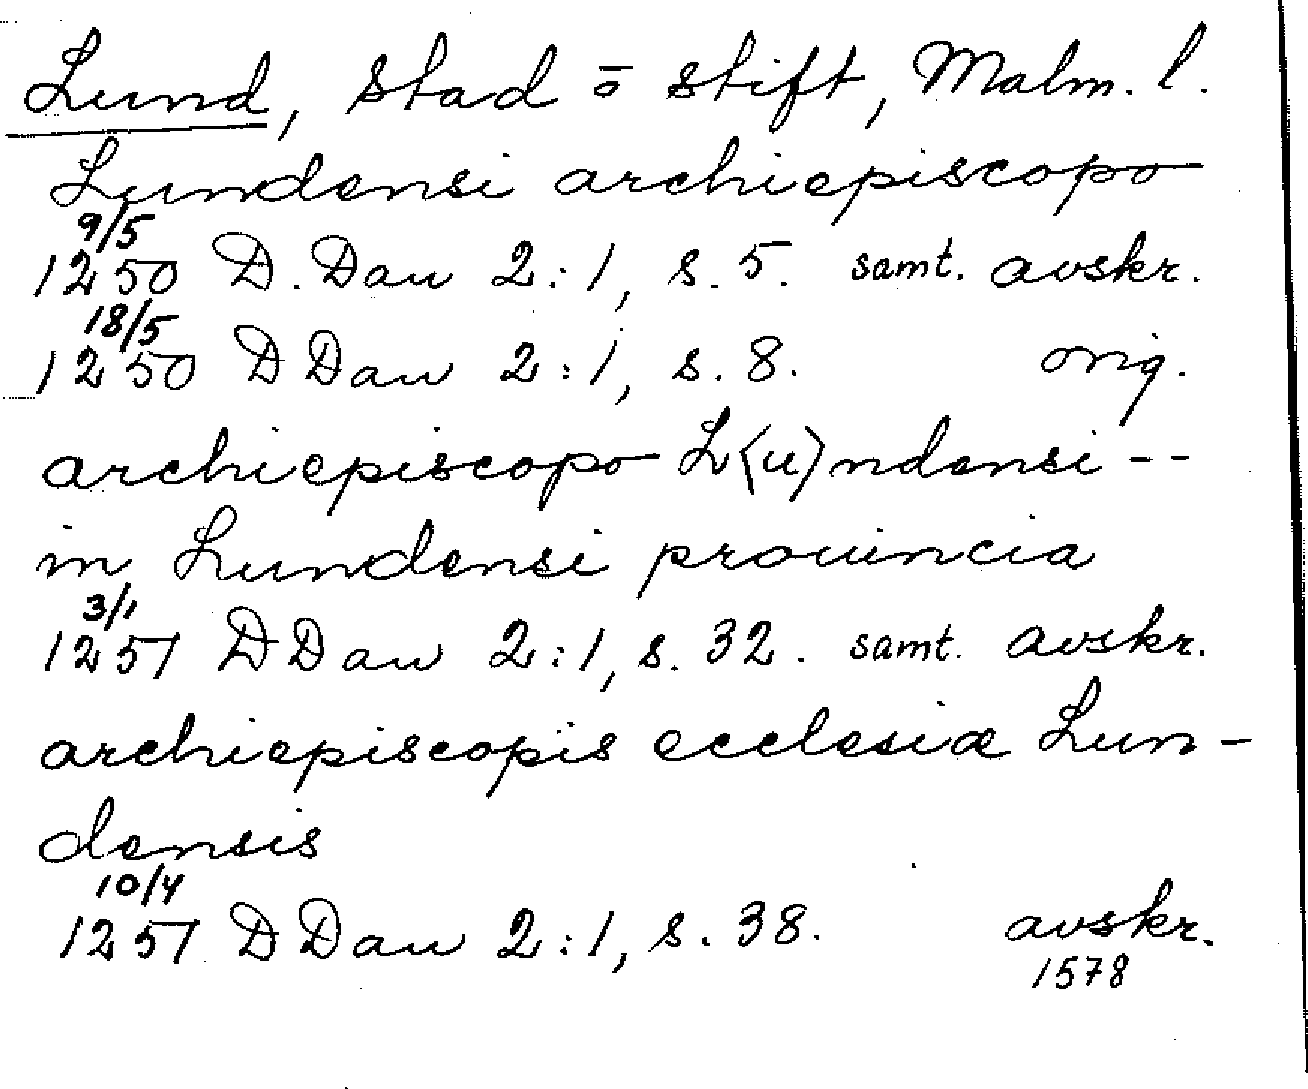 Lund, stad o stift, Malm. l.
Lundensi archiepiscopo
9/5
1250 D. Dan 2:1, s. 5. samt. avskr.
18/5
1250 D Dan 2:1, s. 8. orig.
archiepiscopo L<u>ndensi --
in Lundensi prouincia
3/1
1251 D Dan 2:1, s. 32. samt. avskr.
archiepiscopis ecclesiæ Lun-
densis
10/4
1251 D Dan 2:1, s. 38. avskr.
1578